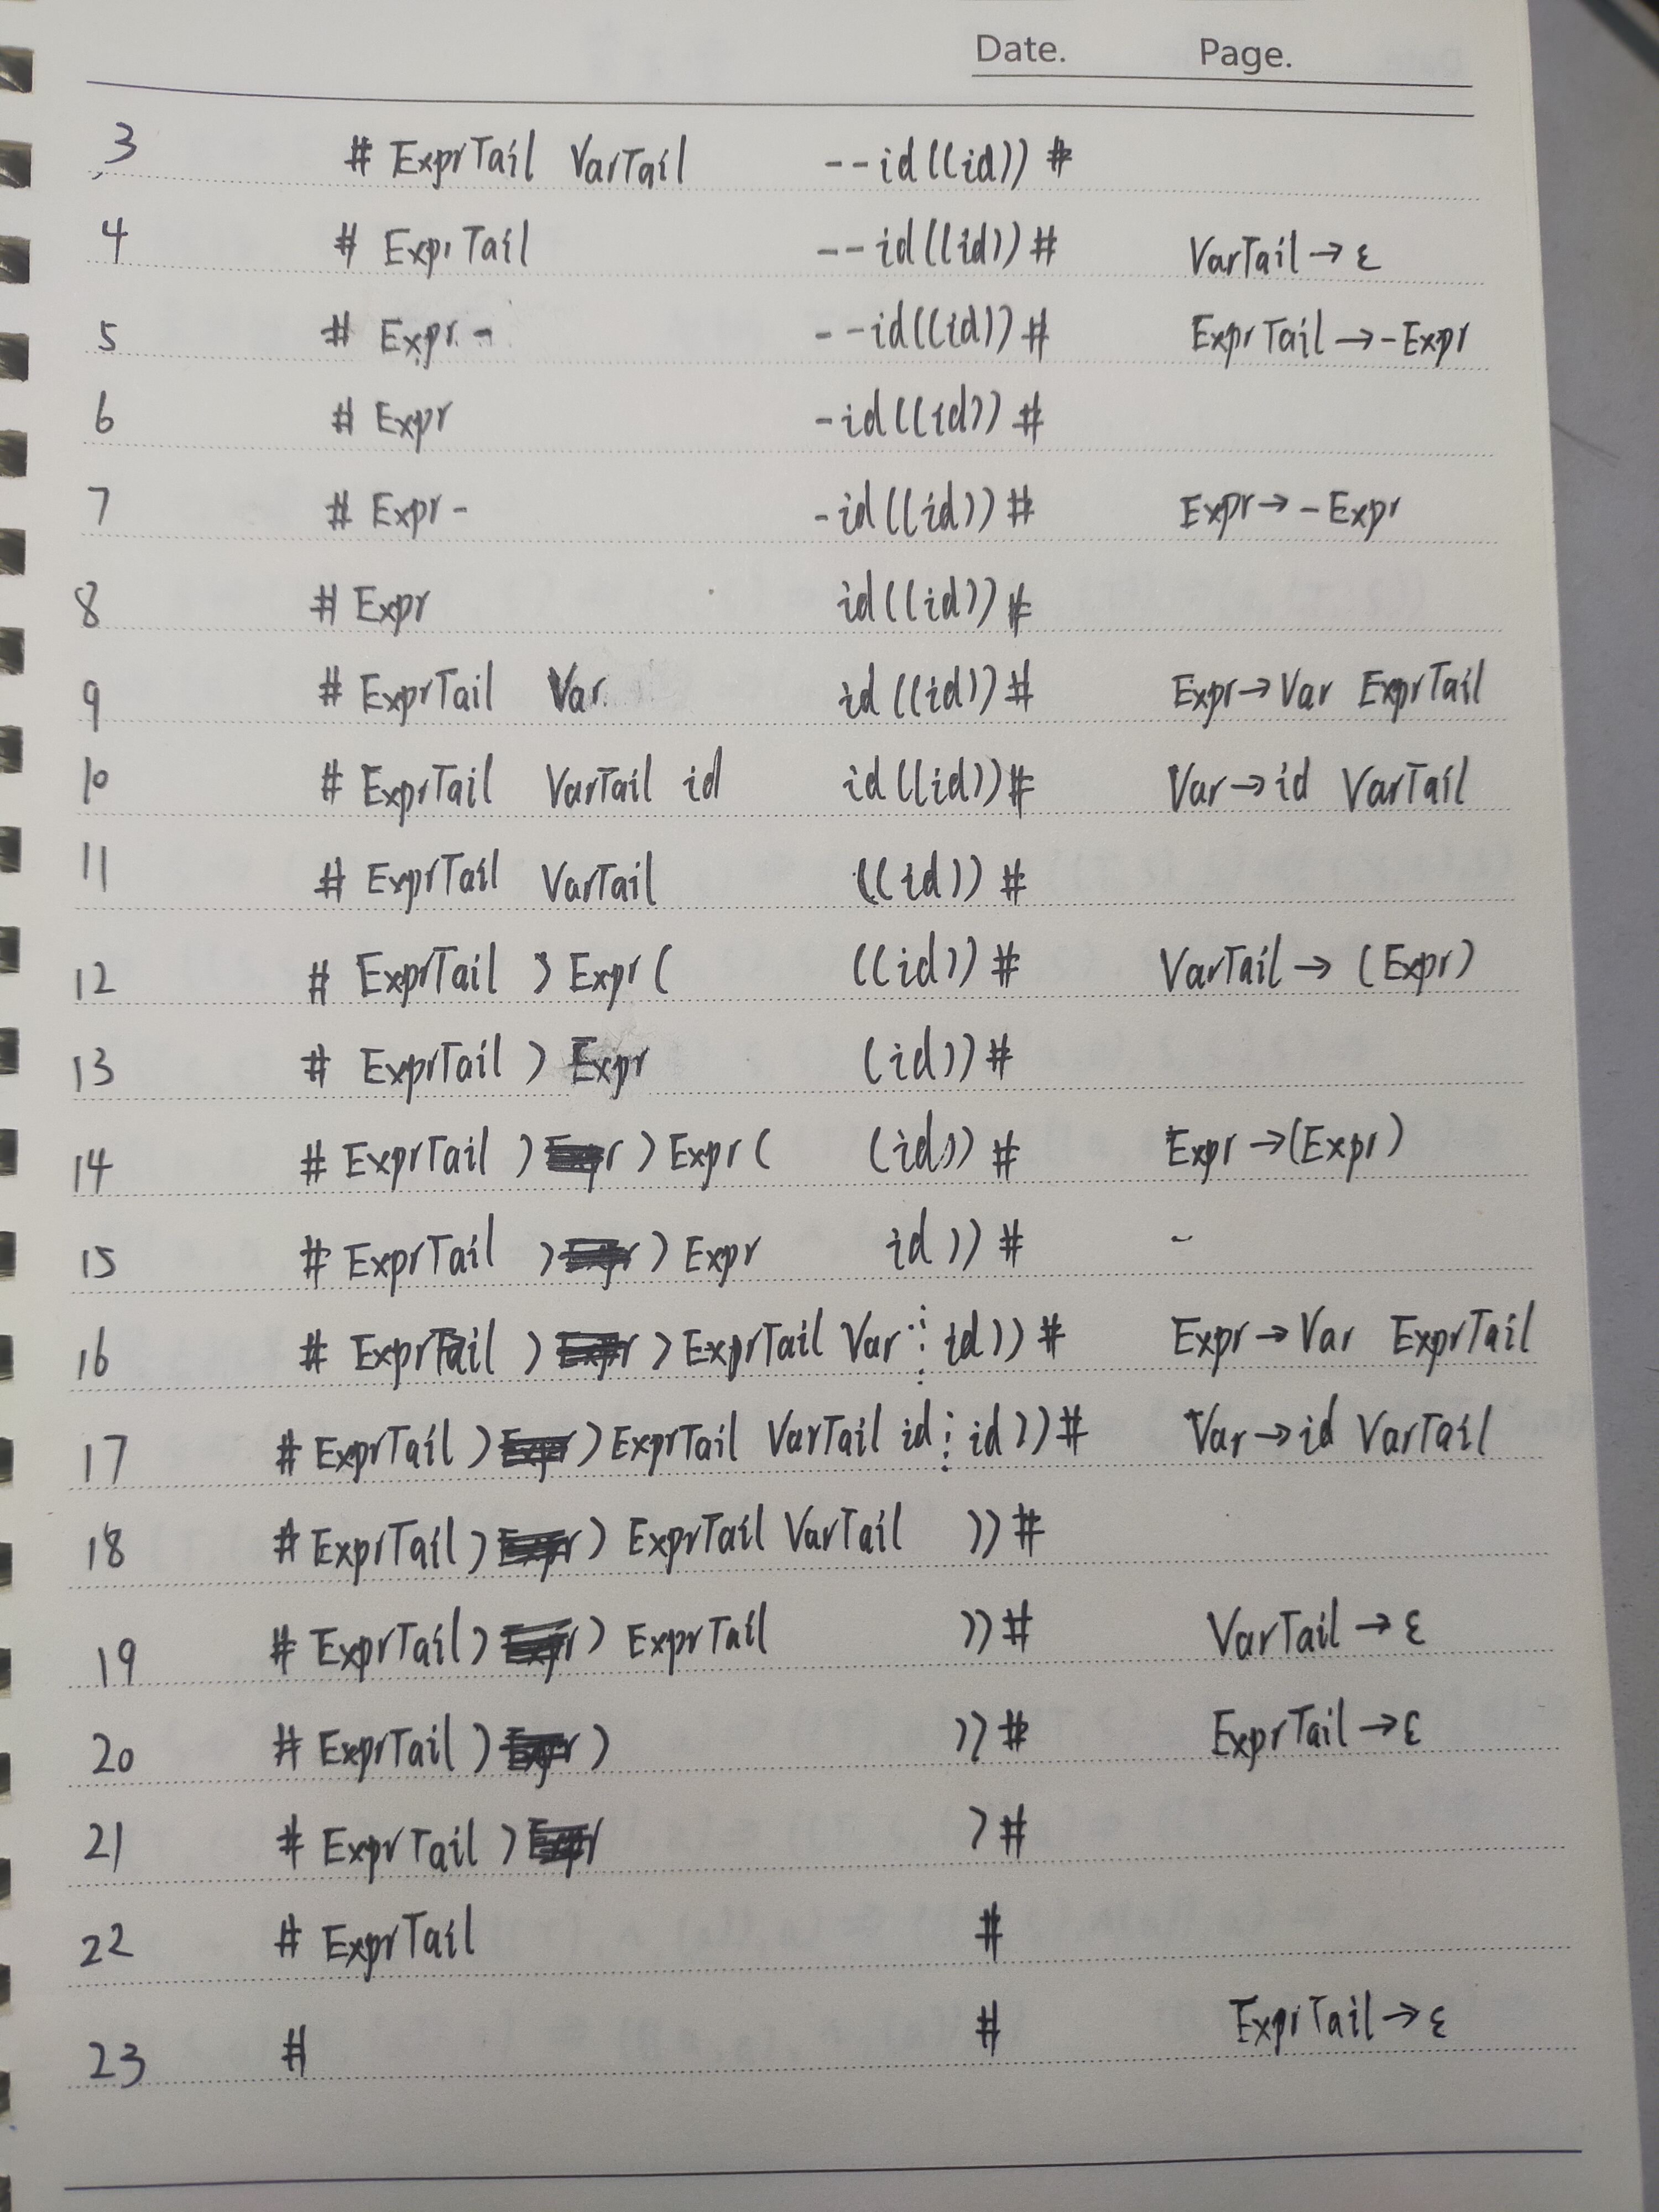 Date. Page.
3 # ExprTail VarTail --id((id))#
4 # ExprTail --id((id))# VarTail→ε
5 # Expr - --id((id))# ExprTail→-Expr
6 # Expr -id((id))#
7 # Expr - -id((id))# Expr→-Expr
8 # Expr id((id))#
9 # ExprTail Var id((id))# Expr→Var ExprTail
10 # ExprTail VarTail id id((id))# Var→id VarTail
11 # ExprTail VarTail ((id))#
12 # ExprTail )Expr( ((id))# VarTail→(Expr)
13 # ExprTail ) Expr (id))#
14 # ExprTail ) ) Expr( (id))# Expr→(Expr)
15 # ExprTail ) ) Expr id))# -
16 # ExprTail ) ) ExprTail Var id))# Expr→Var ExprTail
17 # ExprTail ) ) ExprTail VarTail id id))# Var→id VarTail
18 # ExprTail ) ) ExprTail VarTail ))#
19 # ExprTail ) ) ExprTail ))# VarTail→ε
20 # ExprTail ) ) ))# ExprTail→ε
21 # ExprTail ) )#
22 # ExprTail #
23 # # ExprTail→ε